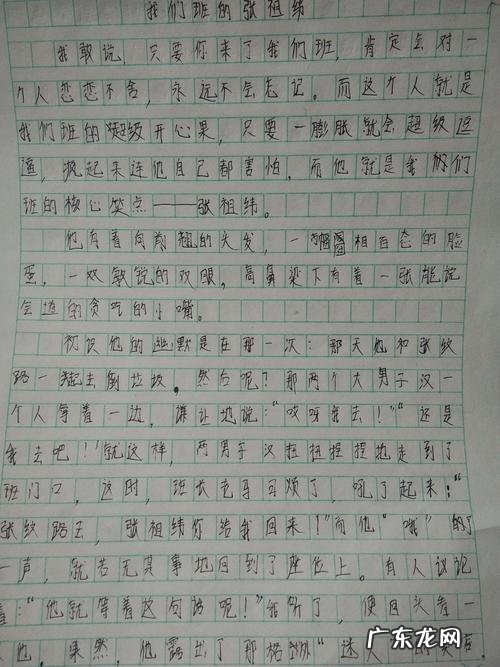 我们班的张祖纬
我敢说，只要你来了我们班，肯定会对一
个人恋恋不舍，永远不会忘记。而这个人就是
我们班的超级开心果，只要一膨胀就会超级逗
逼，疯起来连他自己都害怕。而他就是我们
班的核心笑点——张祖纬。
他有着向前翘的头发，一相百态的脸
蛋，一双敏锐的双眼。高鼻梁下有着一张能说
会道的贪吃的小嘴。
初识他的幽默是在那一次：那天他和张纹
路一起去倒垃圾。然后呢？那两个大男子汉一
个人等着一边，谦让地说：“哎呀我去！”“还是
我去吧！”就这样，两男子汉扭扭捏捏地走到了
班门口，这时，班长可烦了，吼了起来：“
张纹路，张祖纬你给我回来！”而他“哦”的了
一声，就若无其事地回到了座位上。有人议论
着：“他就等着这句话呢！”我听了，便回头看一
他，果然，他露出了那格外“迷
广东龙网